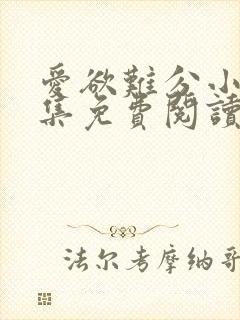 愛欲難分小
集免費閱讀
法尔考摩纳哥